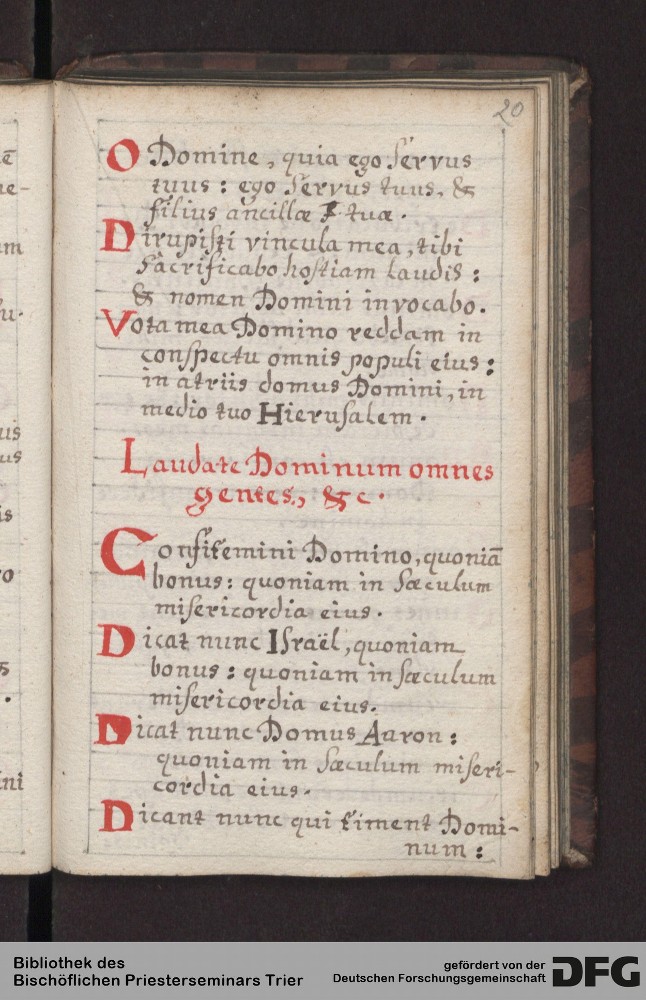 20
O Domine, quia ego Servus
tuus: ego Servus tuus, &
filius ancillæ tuæ.
Dirupisti vincula mea, tibi
sacrificabo hostiam laudis:
& nomen Domini invocabo.
Vota mea Domino reddam in
conspectu omnis populi eius:
in atriis domus Domini, in
medio tuo Hierusalem.
Laudate Dominum omnes
gentes, &c.
Confitemini Domino, quoniã
bonus: quoniam in sæculum
misericordia eius.
Dicat nunc Israël, quoniam
bonus: quoniam in sæculum
misericordia eius.
Dicat nunc Domus Aaron:
quoniam in sæculum miseri-
cordia eius.
Dicant nunc qui timent Domi-
num:
Bibliothek des
Bischöflichen Priesterseminars Trier
gefördert von der
Deutschen Forschungsgemeinschaft
DFG